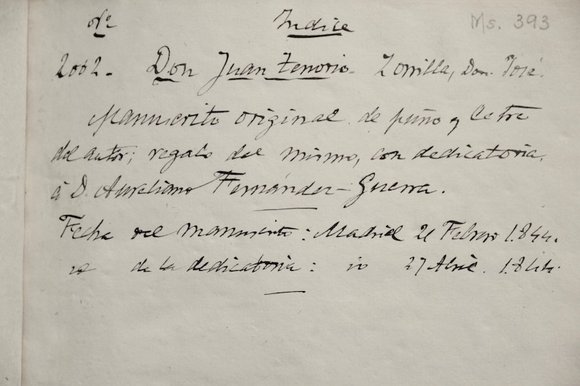 Nº Indice Ms. 393
2062. Don Juan Tenorio. Zorrilla, Don José.
Manuscrito original de puño y letra
del autor; regalo del mismo, con dedicatoria
á D. Aureliano Fernández-Guerra.
Fecha del manuscrito: Madrid 21 Febrero 1.844.
de la dedicatoria: 27 Abril.